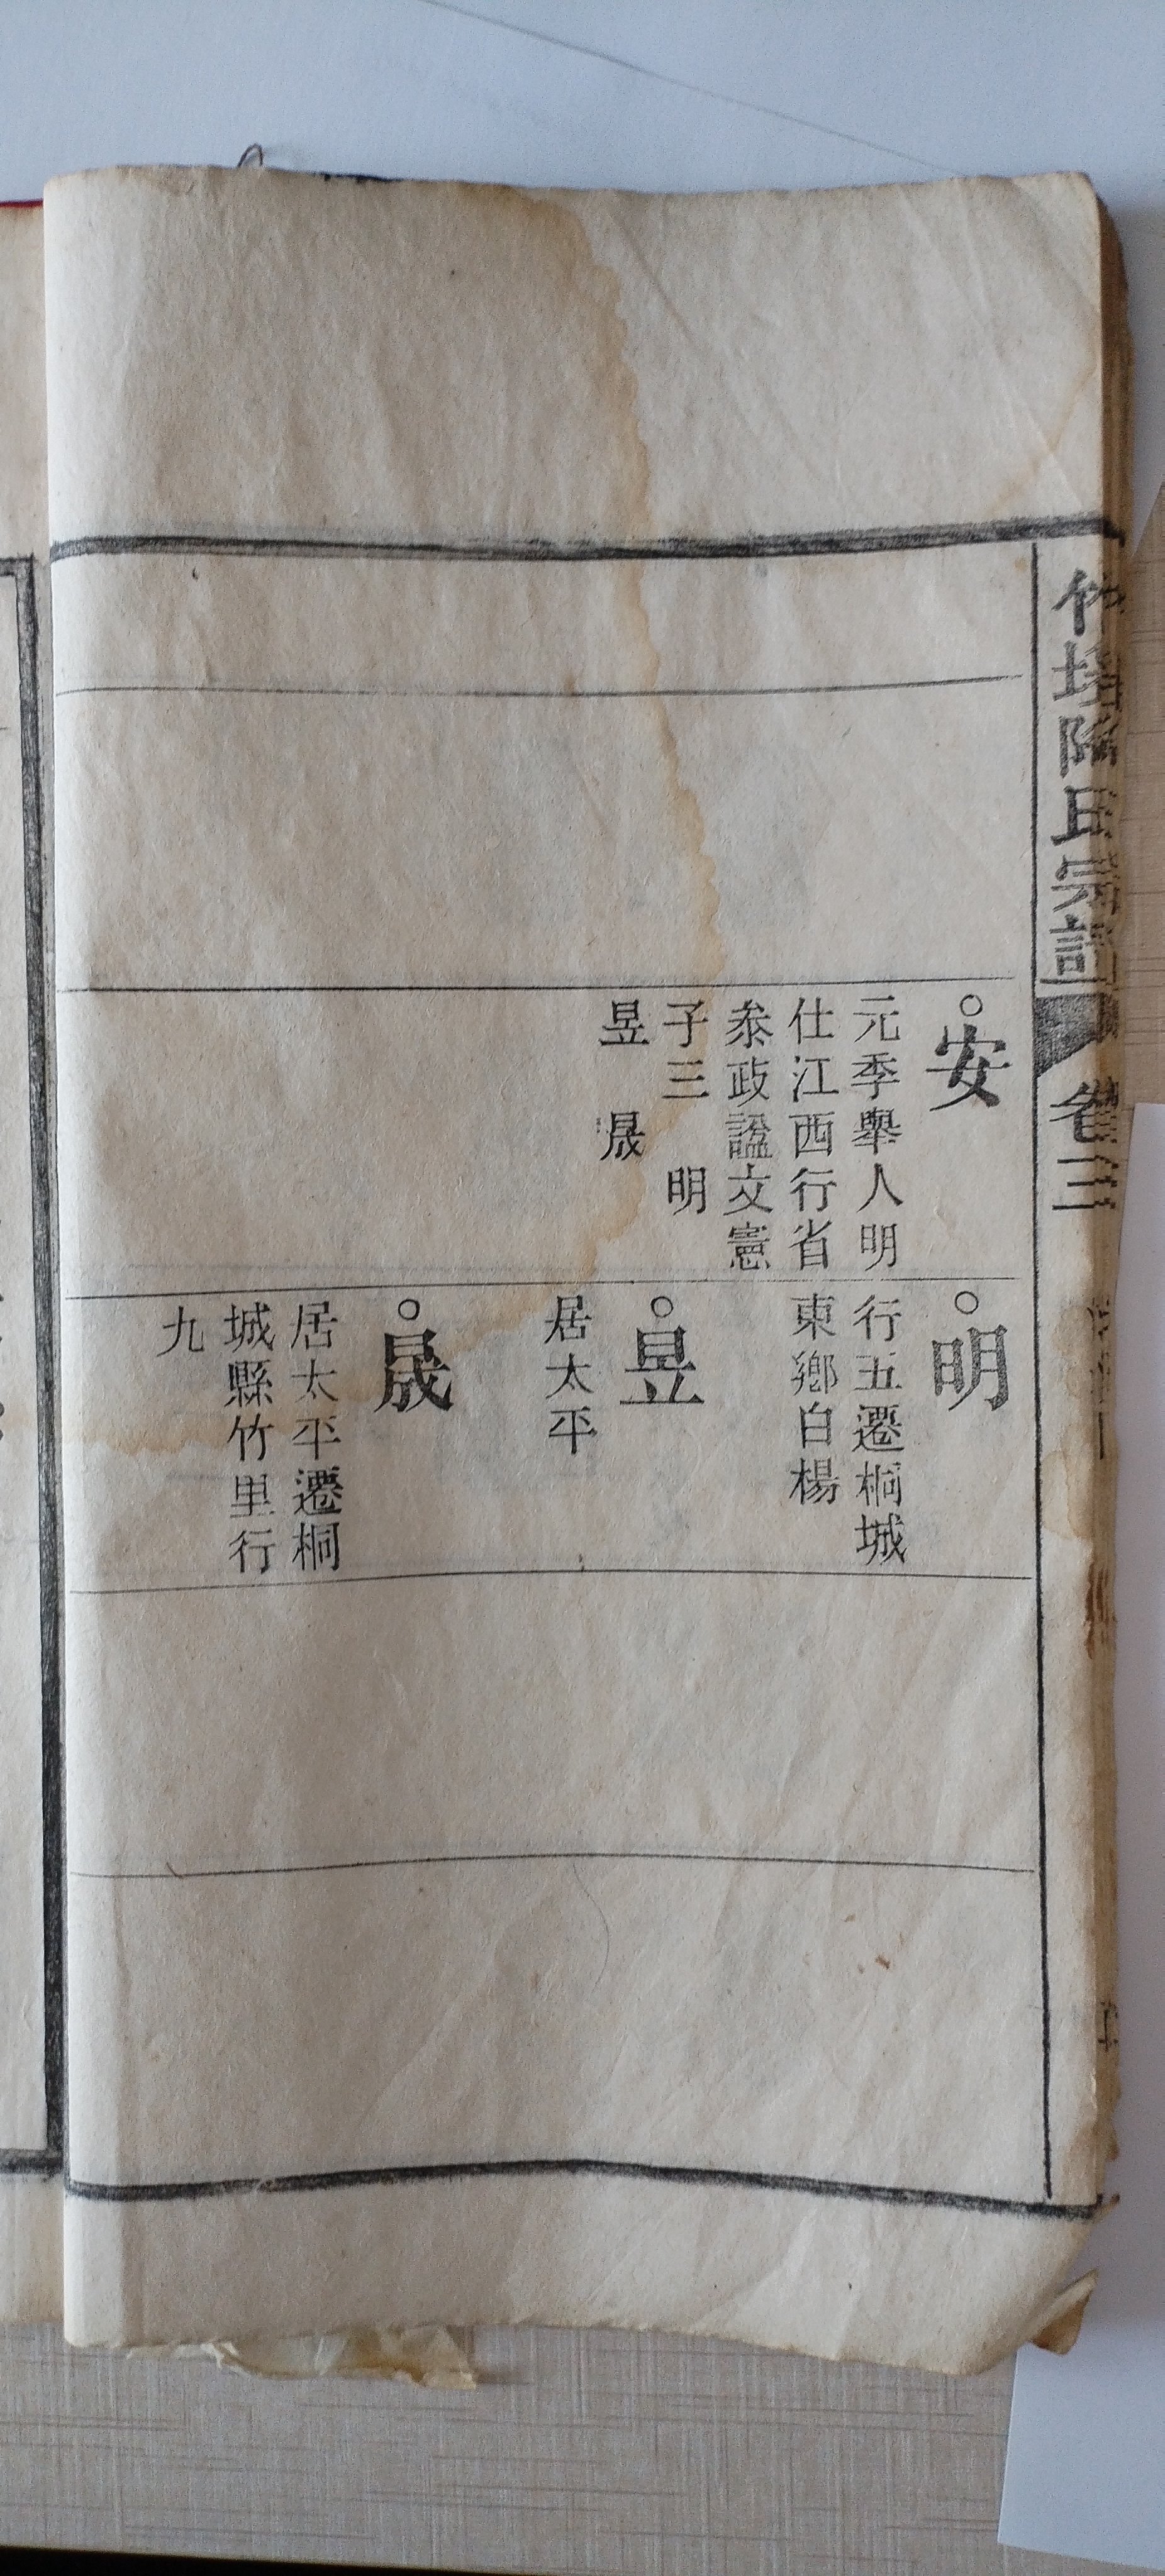 安
元季舉人明
仕江西行省
叅政諡文憲
子三　明
昱　晟
明
行五遷桐城
東鄉白楊
昱
居太平
晟
居太平遷桐
城縣竹里行
九